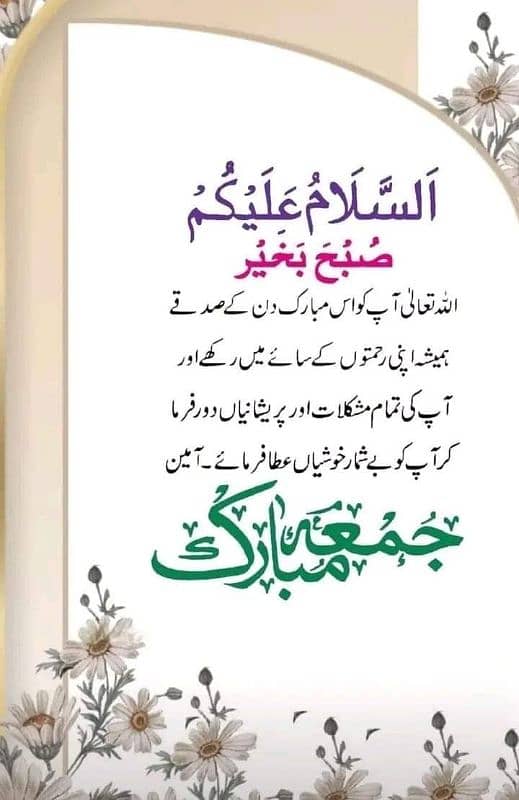 اَلسَّلَامُ عَلَيْكُمْ
صُبْحَ بَخَیْر
اللہ تعالیٰ آپ کو اس مبارک دن کے صدقے
ہمیشہ اپنی رحمتوں کے سائے میں رکھے اور
آپ کی تمام مشکلات اور پریشانیاں دور فرما
کر آپ کو بے شمار خوشیاں عطا فرمائے۔ آمین
جُمعہ مبارک